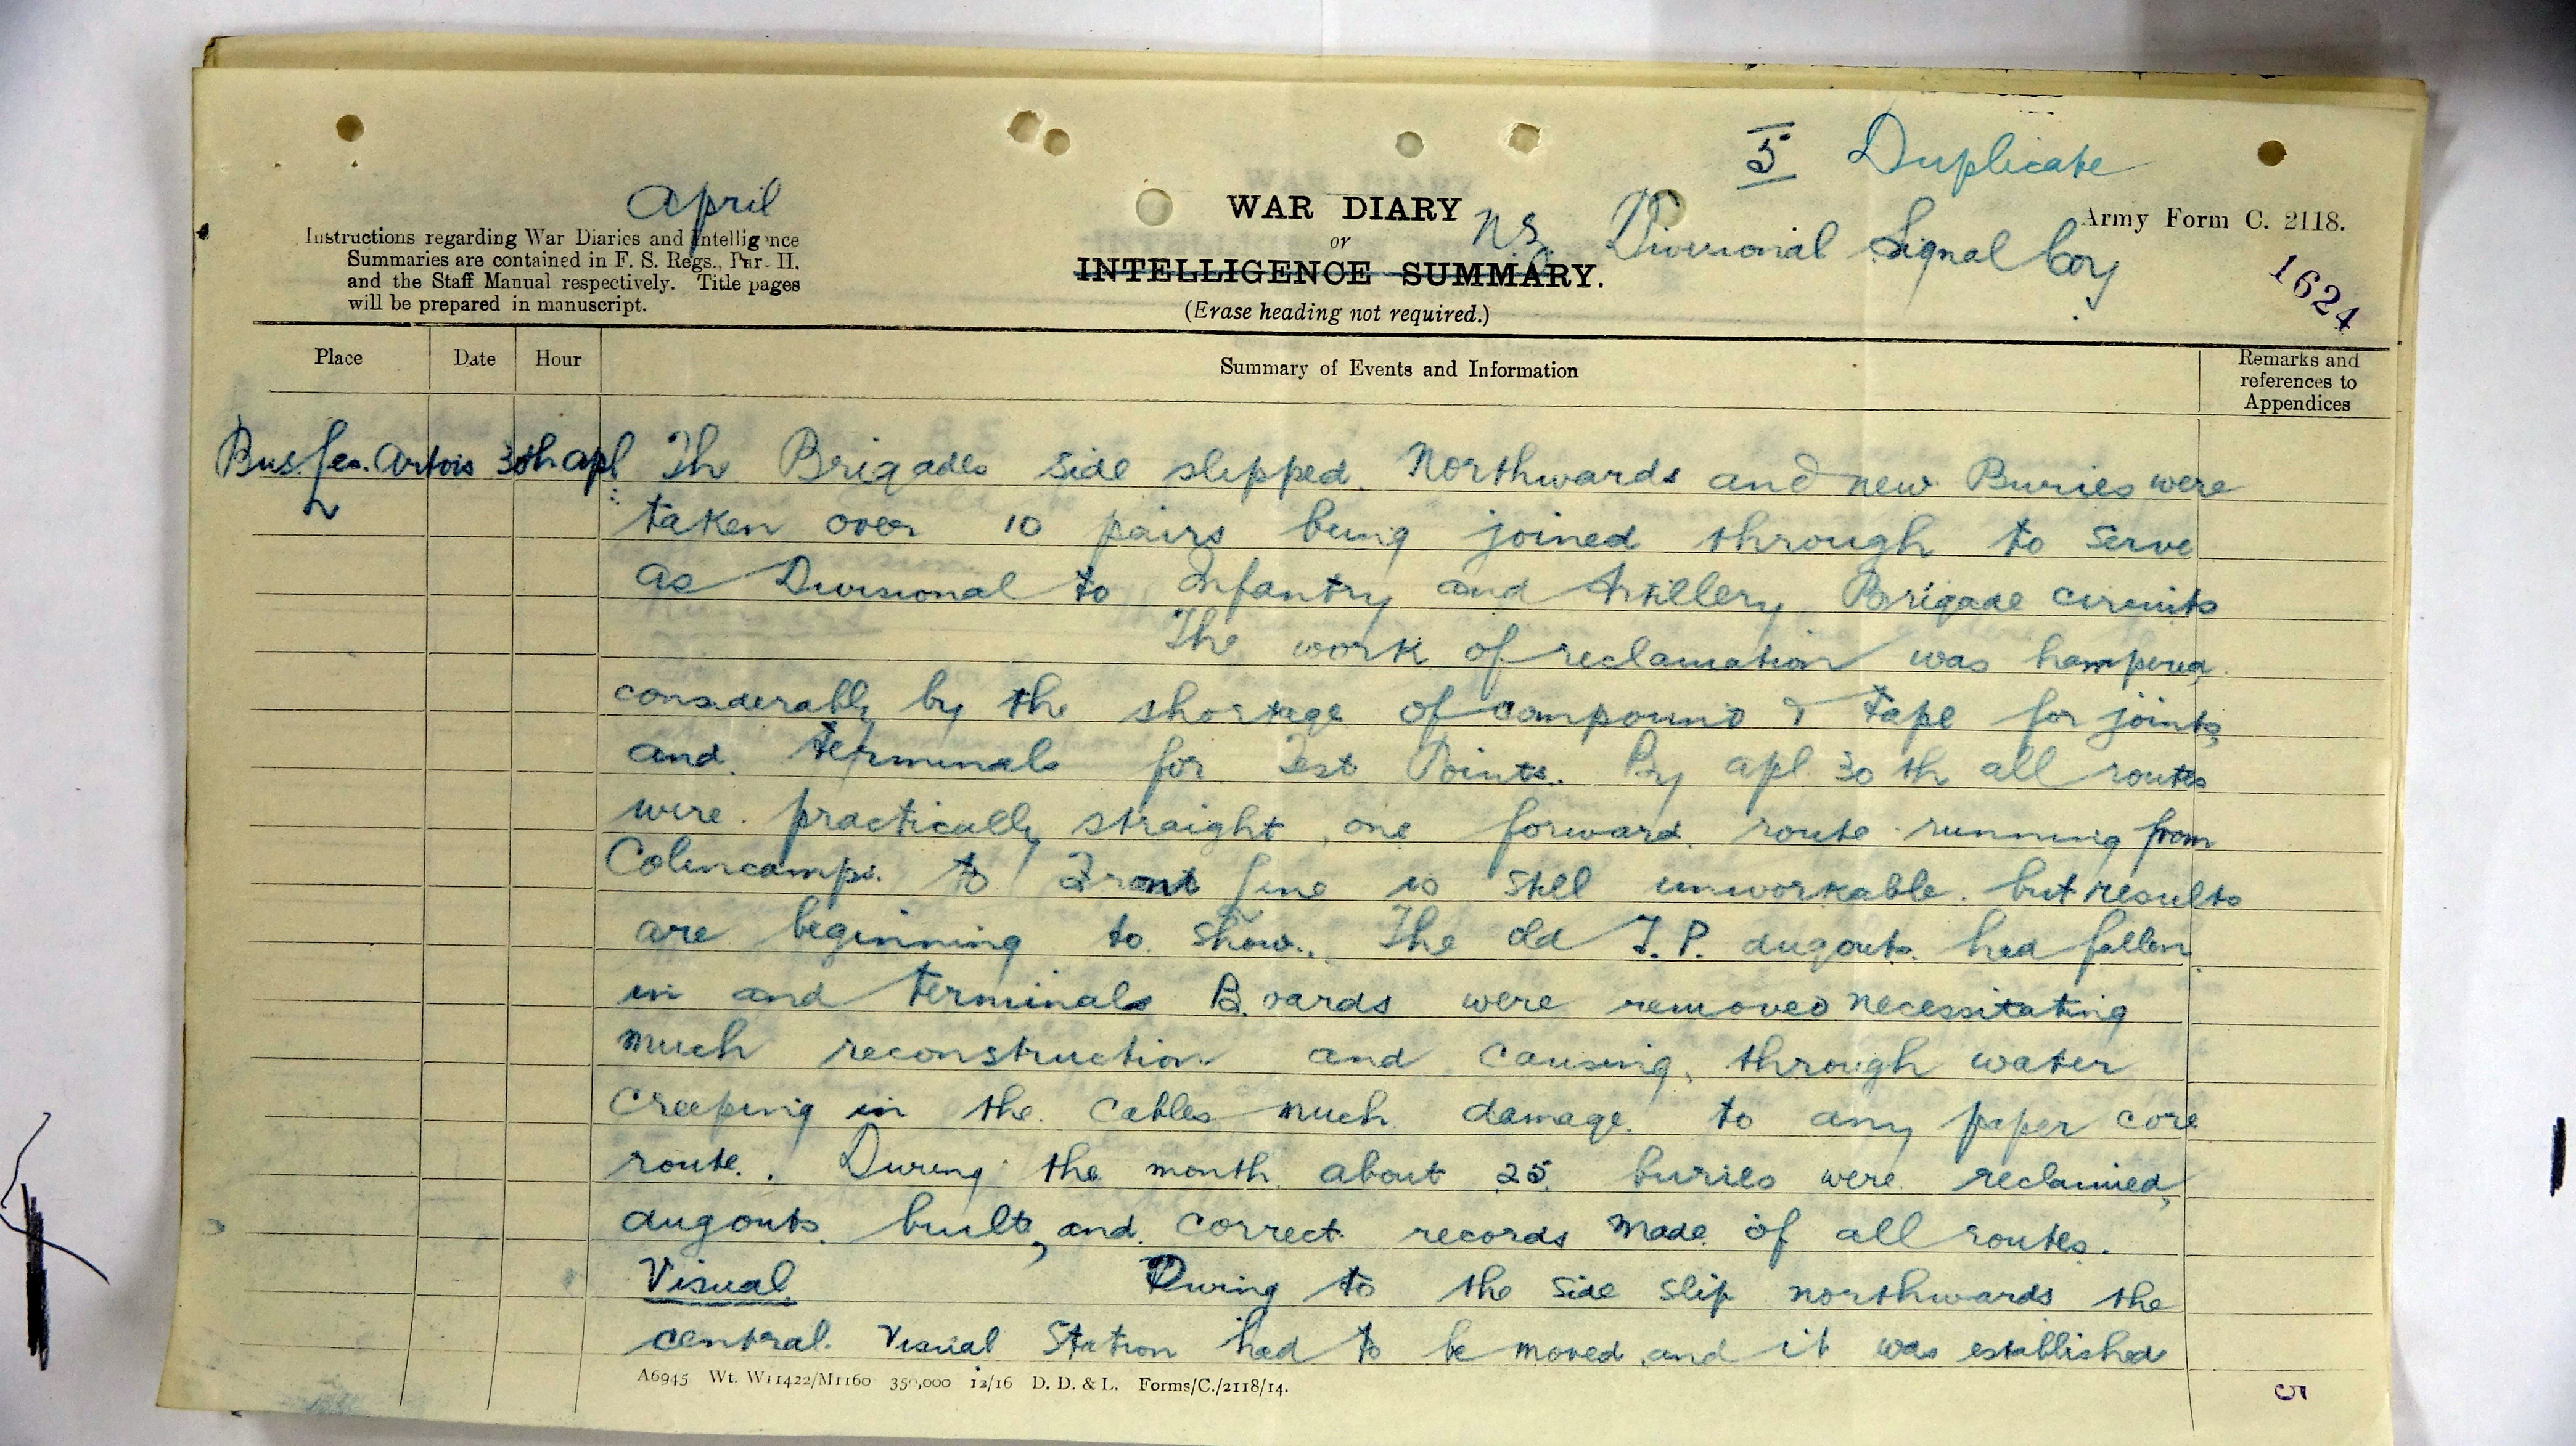 5 Duplicate
April
WAR DIARY
or
INTELLIGENCE SUMMARY.
(Erase heading not required.)
NZ Divisional Signal Coy
Army Form C. 2118.
1624
Instructions regarding War Diaries and Intelligence
Summaries are contained in F. S. Regs., Part II.
and the Staff Manual respectively. Title pages
will be prepared in manuscript.
Place Date Hour Summary of Events and Information Remarks and references to Appendices
Bus. les. Artois 30th apl Th Brigades side slipped. Northwards and new Buries were
taken over 10 pairs being joined through to serve
as Divisional to Infantry and Artillery Brigade circuits
The work of reclamation was hampered
considerably by the shortage of compound & tape for joints,
and terminals for Test Points. By apl. 30th all routes
were practically straight, one forward route running from
Colincamps. to Front line is still unworkable. but results
are beginning to show.. The old T.P. dugouts had fallen
in and terminals Boards were removed necessitating
much reconstruction and causing, through water
creeping in the cables much damage to any paper core
route.. During the month about 25 buries were reclaimed,
dugouts built, and correct records made of all routes.
Visual During to the side slip northwards the
central Visual Station had to be moved, and it was established
A6945 Wt. W11422/M1160 350,000 12/16 D. D. & L. Forms/C./2118/14.
5